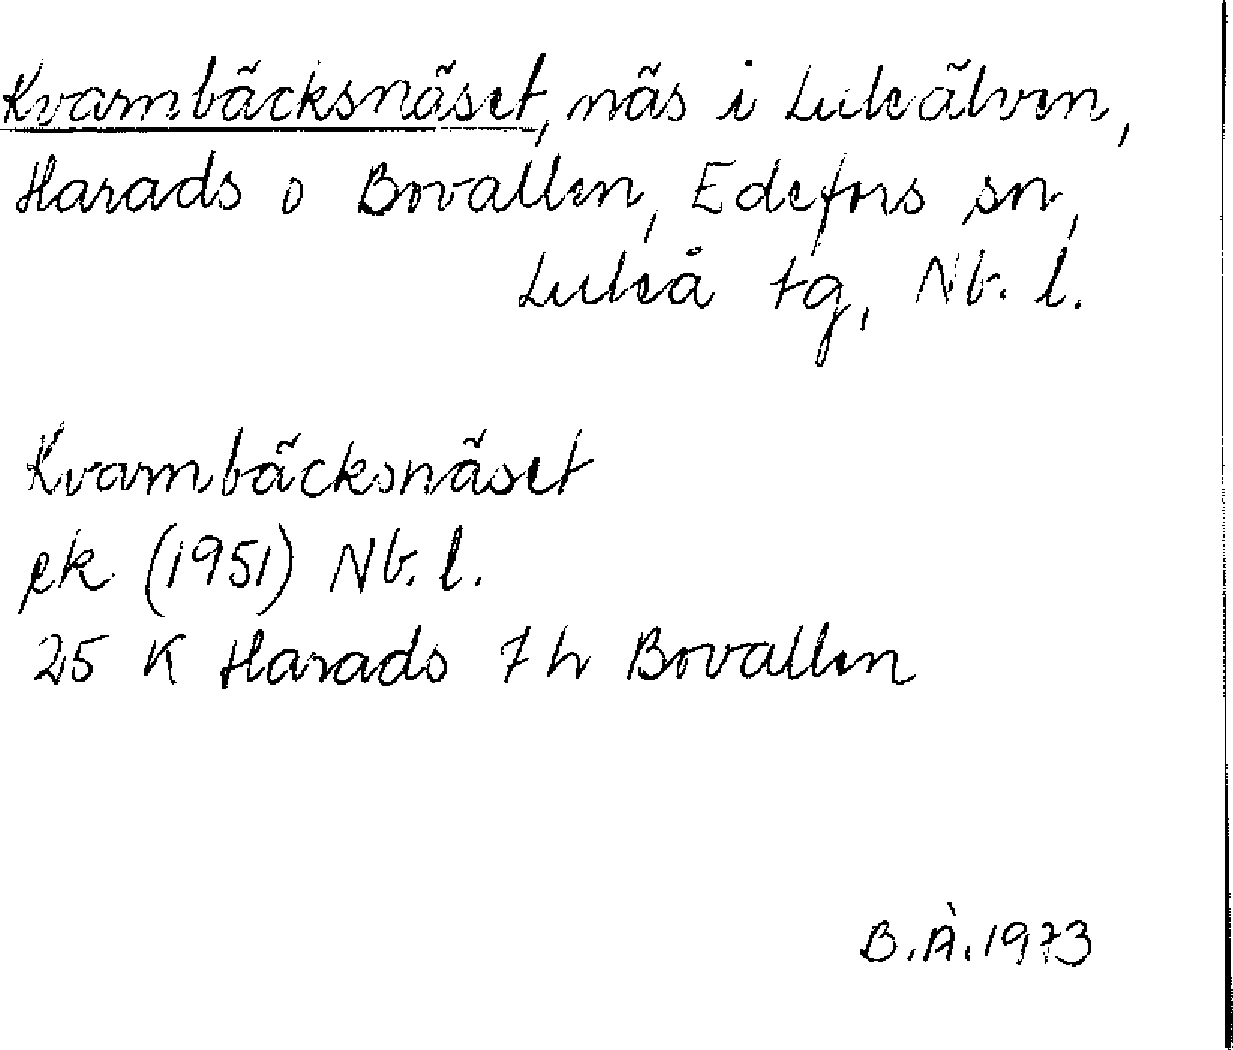 Kvarnbäcksnäset, näs i Luleälven,
Harads o Bovallen, Edefors sn,
Luleå tg, Nb. l.
Kvarnbäcksnäset
ek (1951) Nb. l.
25 K Harads 7 h Bovallen
B.Å.1973